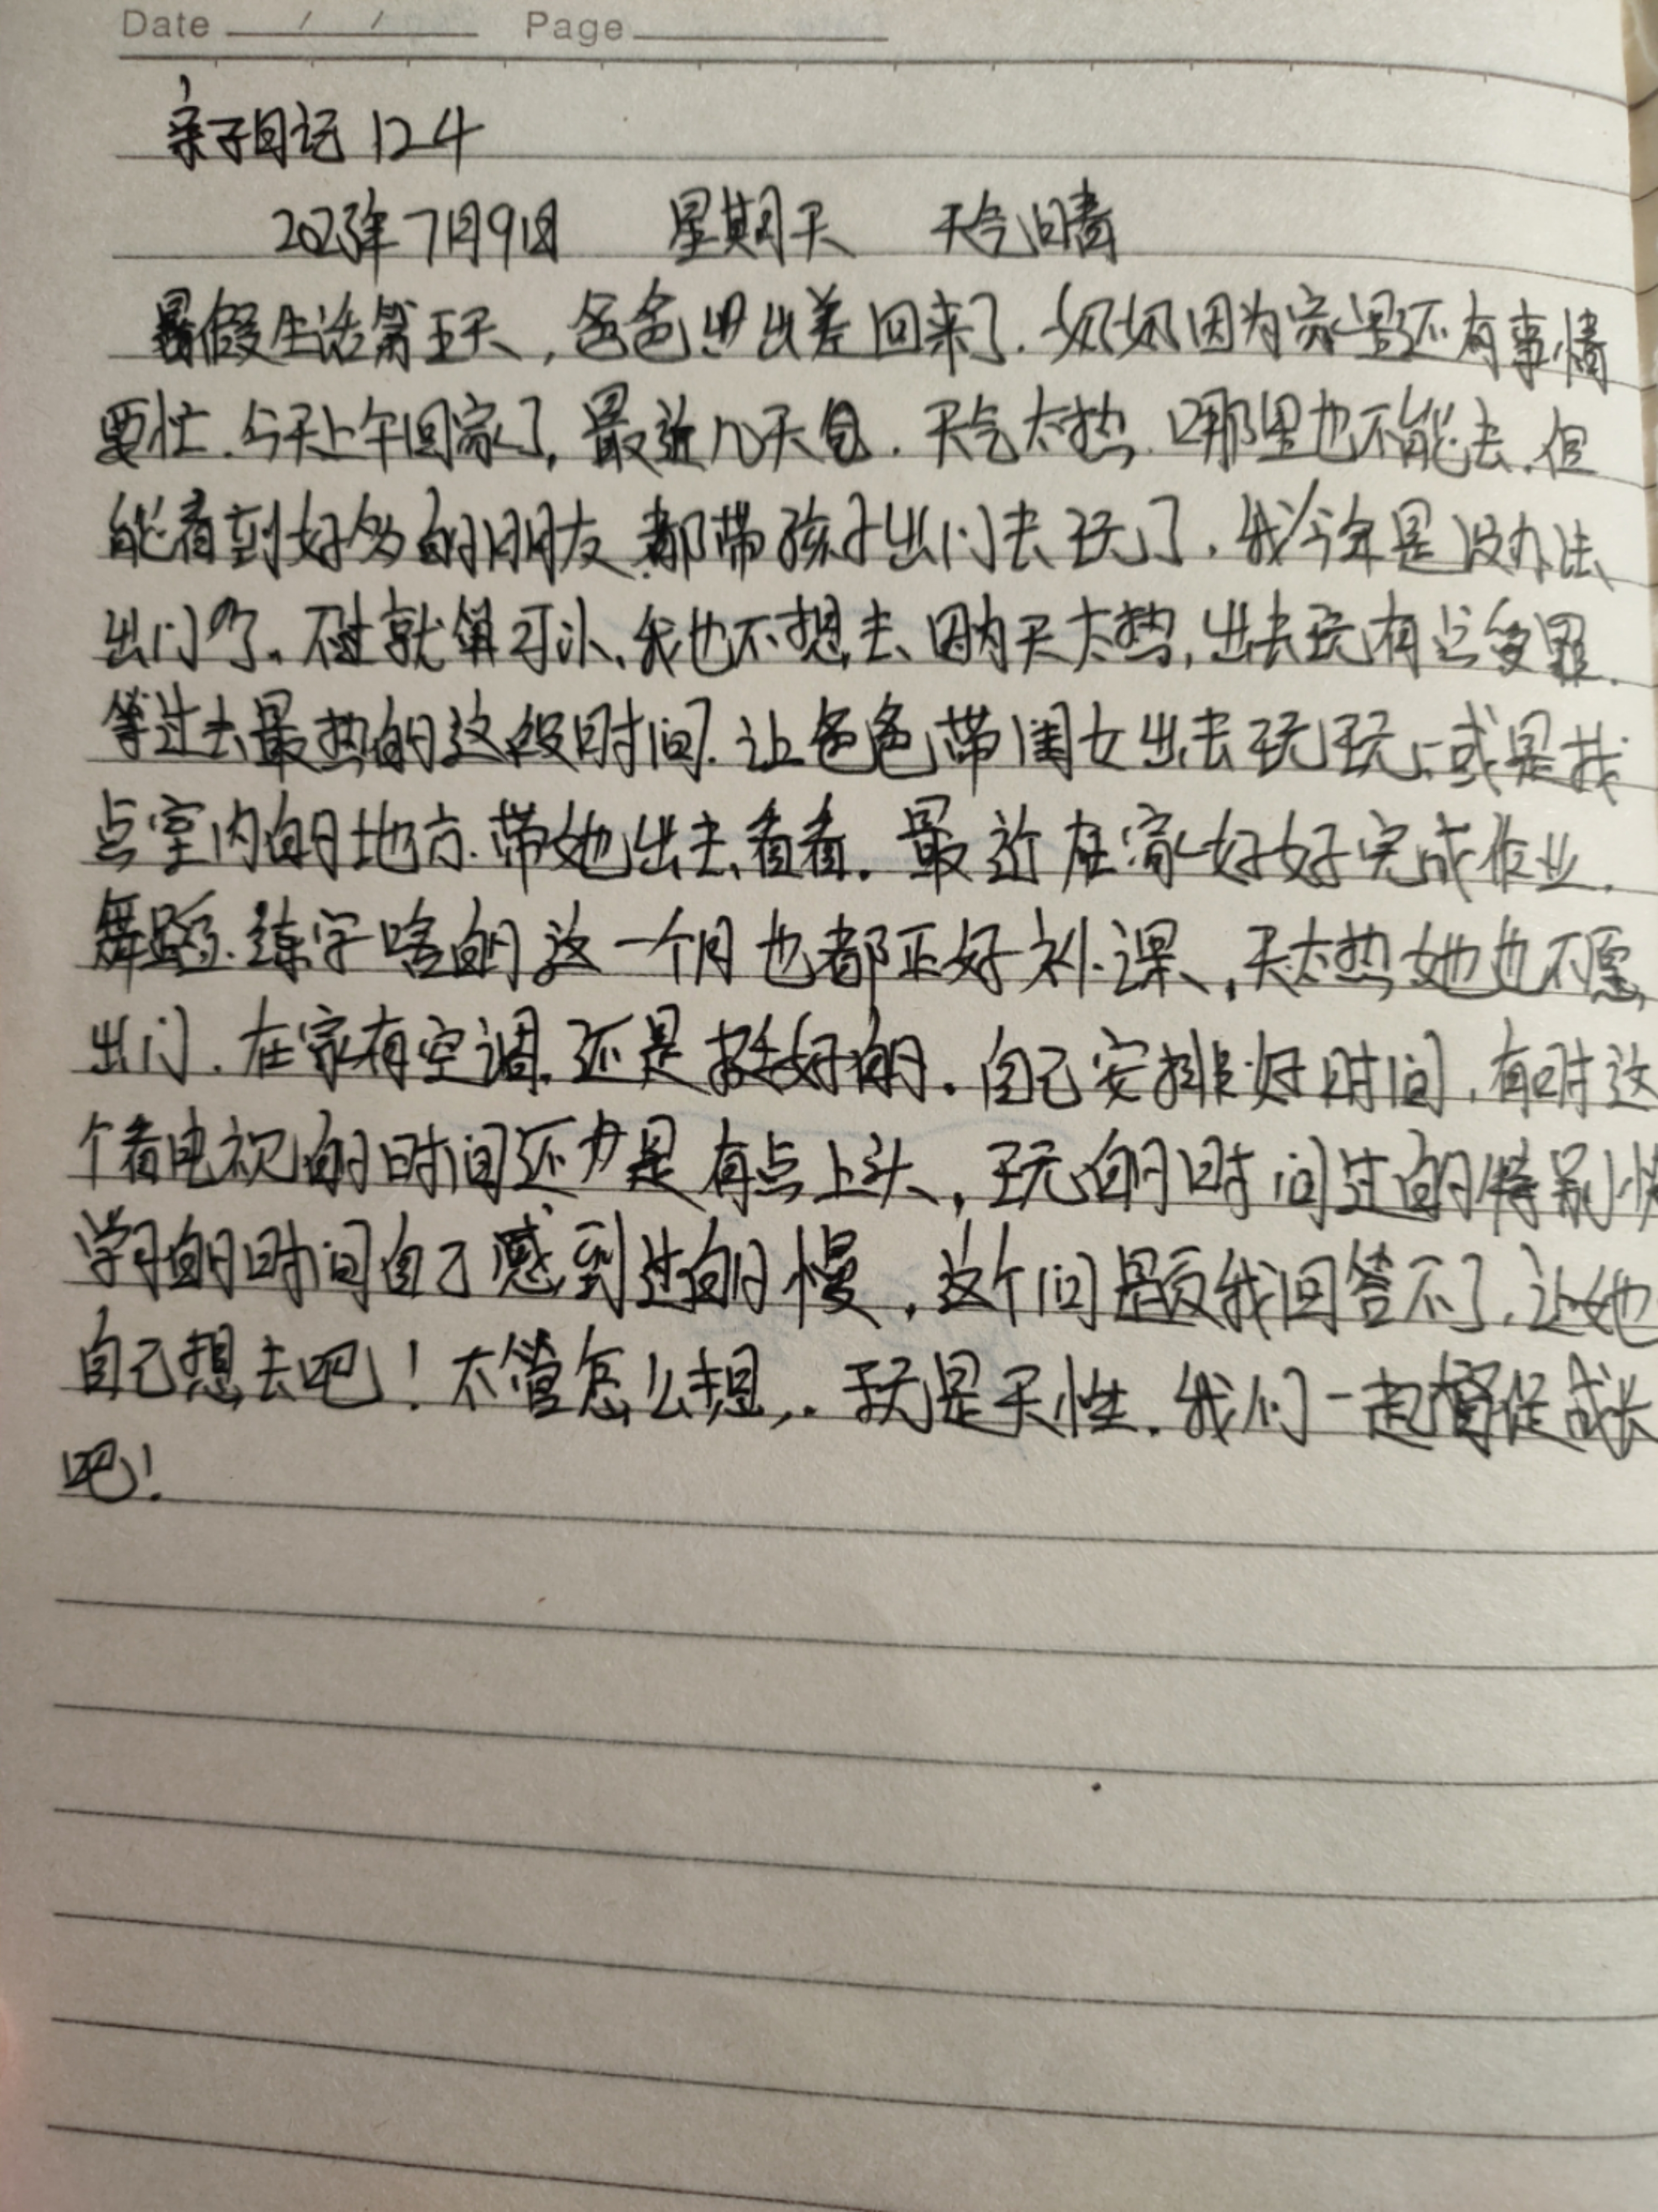 Date / / Page
亲子日记124
2023年7月9日 星期天 天气晴
暑假生活第五天,爸爸出差回来了.奶奶因为家里还有事情
要忙.今天上午回家了,最近几天.天气太热.哪里也不能去.但
能看到好多的朋友都带孩子出门去玩了.我今年是没办法
出门了.不过就算可以、我也不想去、因为天太热,出去玩有点受罪.
等过去最热的这段时间.让爸爸带闺女出去玩玩、或是找
点室内的地方.带她出去看看.最近在家好好完成作业.
舞蹈.练字啥的这一个月也都正好补课、,天太热她也不愿
出门.在家有空调.还是挺好的.自己安排好时间,有时这
个看电视的时间还是有点上头、,玩的时间过的特别快
学习的时间自己感到过的慢,这个问题我回答不了.让她
自己想去吧!不管怎么想,.玩是天性.我们一起督促成长
吧!